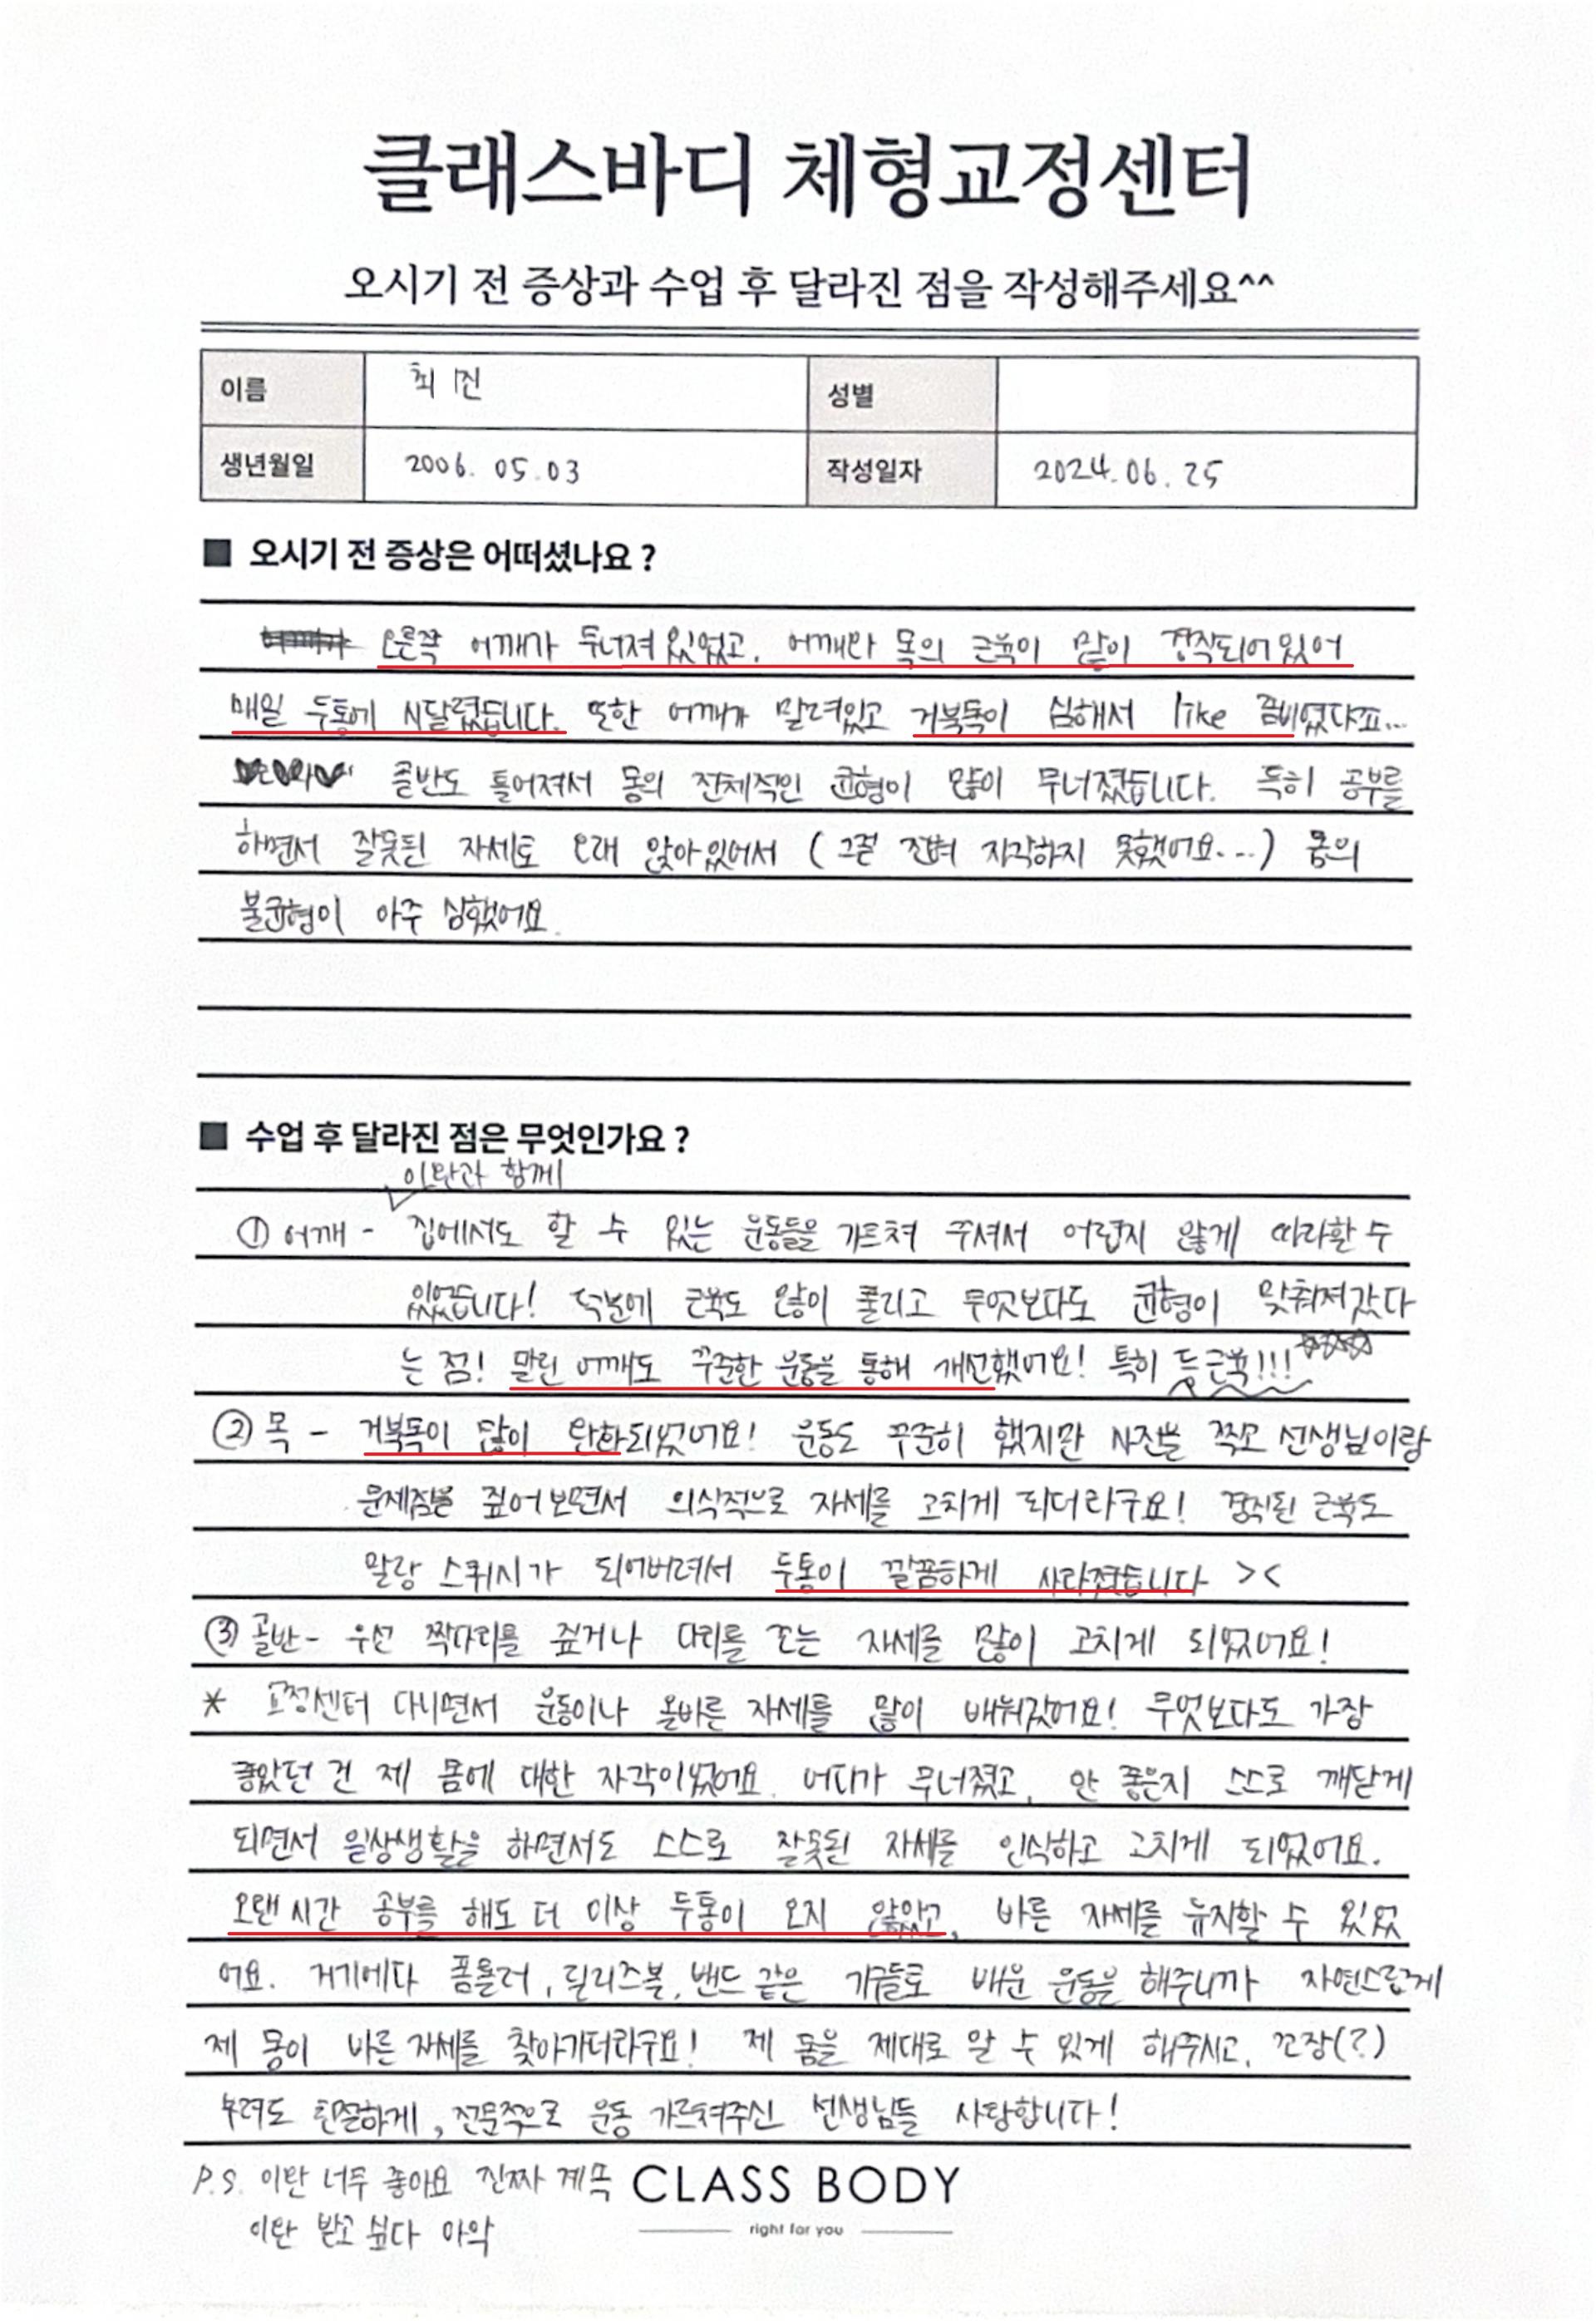 클래스바디 체형교정센터
오시기 전 증상과 수업 후 달라진 점을 작성해주세요^^
이름 최 진 성별
생년월일 2006. 05. 03 작성일자 2024. 06. 25
■ 오시기 전 증상은 어떠셨나요 ?
오른쪽 어깨가 무너져 있었고, 어깨와 목의 근육이 많이 경직되어있어
매일 두통에 시달렸습니다. 또한 어깨가 말려있고 거북목이 심해서 like 좀비였다죠...
골반도 틀어져서 몸의 전체적인 균형이 많이 무너졌습니다. 특히 공부를
하면서 잘못된 자세로 오래 앉아있어서 (그걸 전혀 자각하지 못했어요....) 몸의
불균형이 아주 심했어요.
■ 수업 후 달라진 점은 무엇인가요 ?
이완과 함께
① 어깨 - 집에서도 할 수 있는 운동들을 가르쳐 주셔서 어렵지 않게 따라할 수
있었습니다! 덕분에 근육도 많이 풀리고 무엇보다도 균형이 맞춰져갔다
는 점! 말린 어깨도 꾸준한 운동을 통해 개선했어요! 특히 등근육!!!
② 목 - 거북목이 많이 완화되었어요! 운동도 꾸준히 했지만 사진을 찍고 선생님이랑
문제점을 짚어보면서 의식적으로 자세를 고치게 되더라구요! 경직된 근육도
말랑 스퀴시가 되어버려서 두통이 깔끔하게 사라졌습니다 ><
③ 골반 - 우선 짝다리를 짚거나 다리를 꼬는 자세를 많이 고치게 되었어요!
* 교정센터 다니면서 운동이나 올바른 자세를 많이 배워갔어요! 무엇보다도 가장
좋았던 건 제 몸에 대한 자각이었어요. 어디가 무너졌고, 안 좋은지 스스로 깨닫게
되면서 일상생활을 하면서도 스스로 잘못된 자세를 인식하고 고치게 되었어요.
오랜 시간 공부를 해도 더 이상 두통이 오지 않았고, 바른 자세를 유지할 수 있었
어요. 거기에다 폼롤러, 릴리즈볼, 밴드 같은 기구들로 배운 운동을 해주니까 자연스럽게
제 몸이 바른 자세를 찾아가더라구요! 제 몸을 제대로 알 수 있게 해주시고, 끈장(?)
부려도 친절하게, 전문적으로 운동 가르쳐주신 선생님들 사랑합니다!
P.S. 이완 너무 좋아요 진짜 계속
이완 받고 싶다 아악
CLASS BODY
right for you